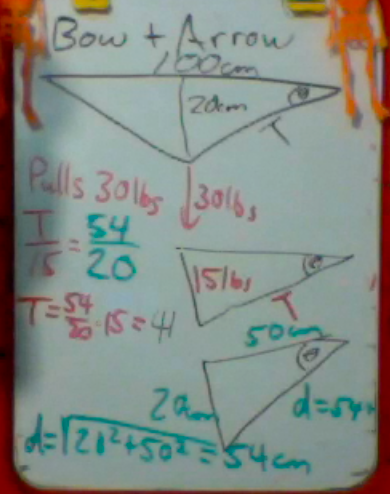 Bow + Arrow
100cm
20cm
θ
T
Pulls 30lbs
30lbs
T/15 = 54/20
15lbs
θ
T
T = 54/20 · 15 = 41
50cm
θ
20cm
d = 54
d = √20² + 50² = 54cm